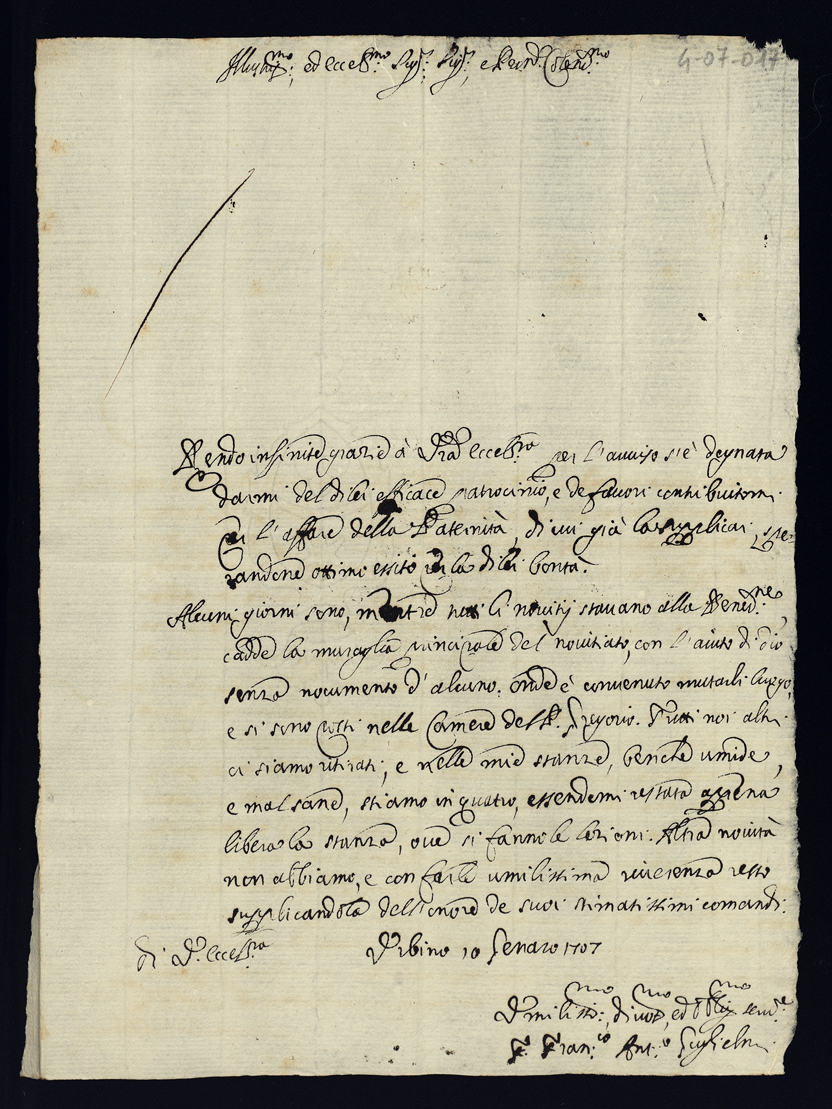 Illustriss:mo, ed Eccell:mo Sig:r Sig:r, e Pron: Colend:mo
4-07-017
Rendo infinite grazie à V:ra Eccell:za per l'avviso s'è degnata
darmi del di lei efficace patrocinio, e de favori contribuitomi
per l'affare della Paternità, di cui già la supplicai, spe=
randone ottimo essito per la di lei bontà.
Alcuni giorni sono, mentre tutti li novitij stavano alla Bened:ne,
cadde la muraglia principale del novitiato, con l'aiuto di Dio
senza nocumento d'alcuno. onde è convenuto mutarli luogo,
e si sono posti nelle Camere del P. Gregorio. Tutti noi altri
ci siamo ritirati, e nelle mie stanze, benche umide,
e mal sane, stiamo in quatro, essendomi restata appena
libera la stanza, oue si fanno le lezioni. Altra novità
non abbiamo, e con farle umilissima riverenza resto
supplicandola dell'onore de suoi stimatissimi comandi.
di V:ra Eccell:za
Urbino 10 Genaro 1707
Umiliss:mo, divot:mo, ed obblig:mo serv:e
F. Fran:co Ant:o Guglielmi